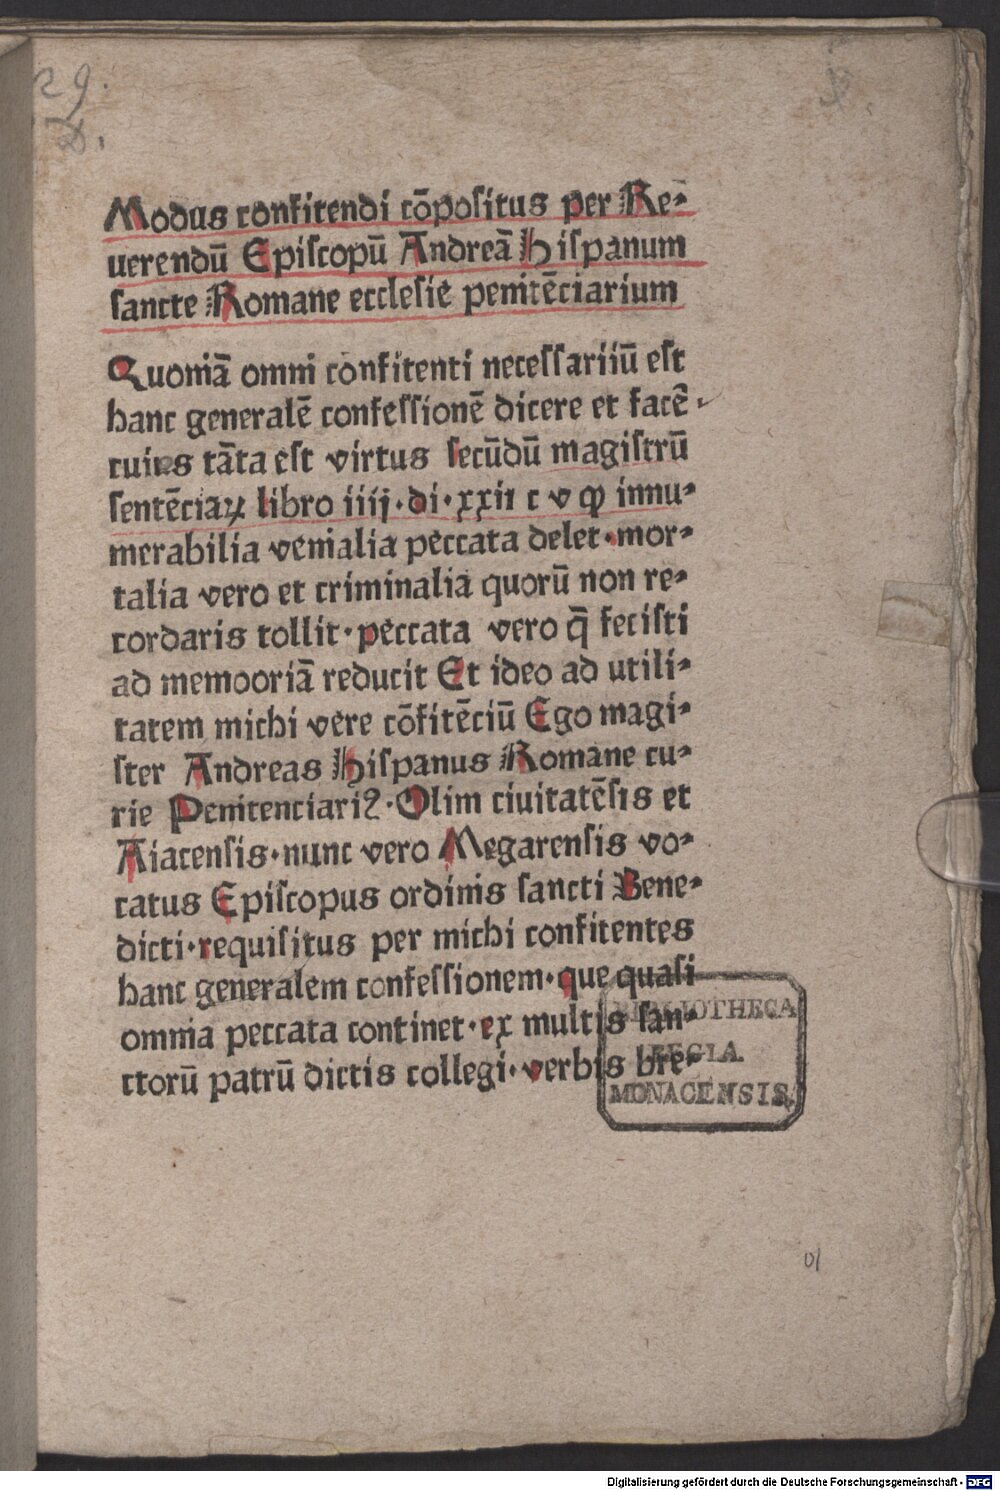 29.
Modus confitendi cōpositus per Re-
uerendū Episcopū Andreā hispanum
sancte Romane ecclesie penitēciarium
Quoniā omni confitenti necessariiū est
hanc generalē confessionē dicere et facē.
cuius tāta est virtus secūdū magistrū
sentēciaꝝ libro iiij·di·xxii c v ꝙ innu-
merabilia venialia peccata delet·mor-
talia vero et criminalia quorū non re-
cordaris tollit·peccata vero q̄ fecisti
ad memooriā reducit Et ideo ad utili-
tatem michi vere cōfitēciū Ego magi-
ster Andreas hispanus Romane cu-
rie Penitenciariꝰ·Olim ciuitatēsis et
Aiacensis·nunc vero Megarensis vo-
catus Episcopus ordinis sancti Bene-
dicti·requisitus per michi confitentes
hanc generalem confessionem·que quasi
omnia peccata continet·ex multis san-
ctorū patrū dictis collegi·verbis bre-
BIBLIOTHECA
REGIA
MONACENSIS.
Digitalisierung gefördert durch die Deutsche Forschungsgemeinschaft - DFG